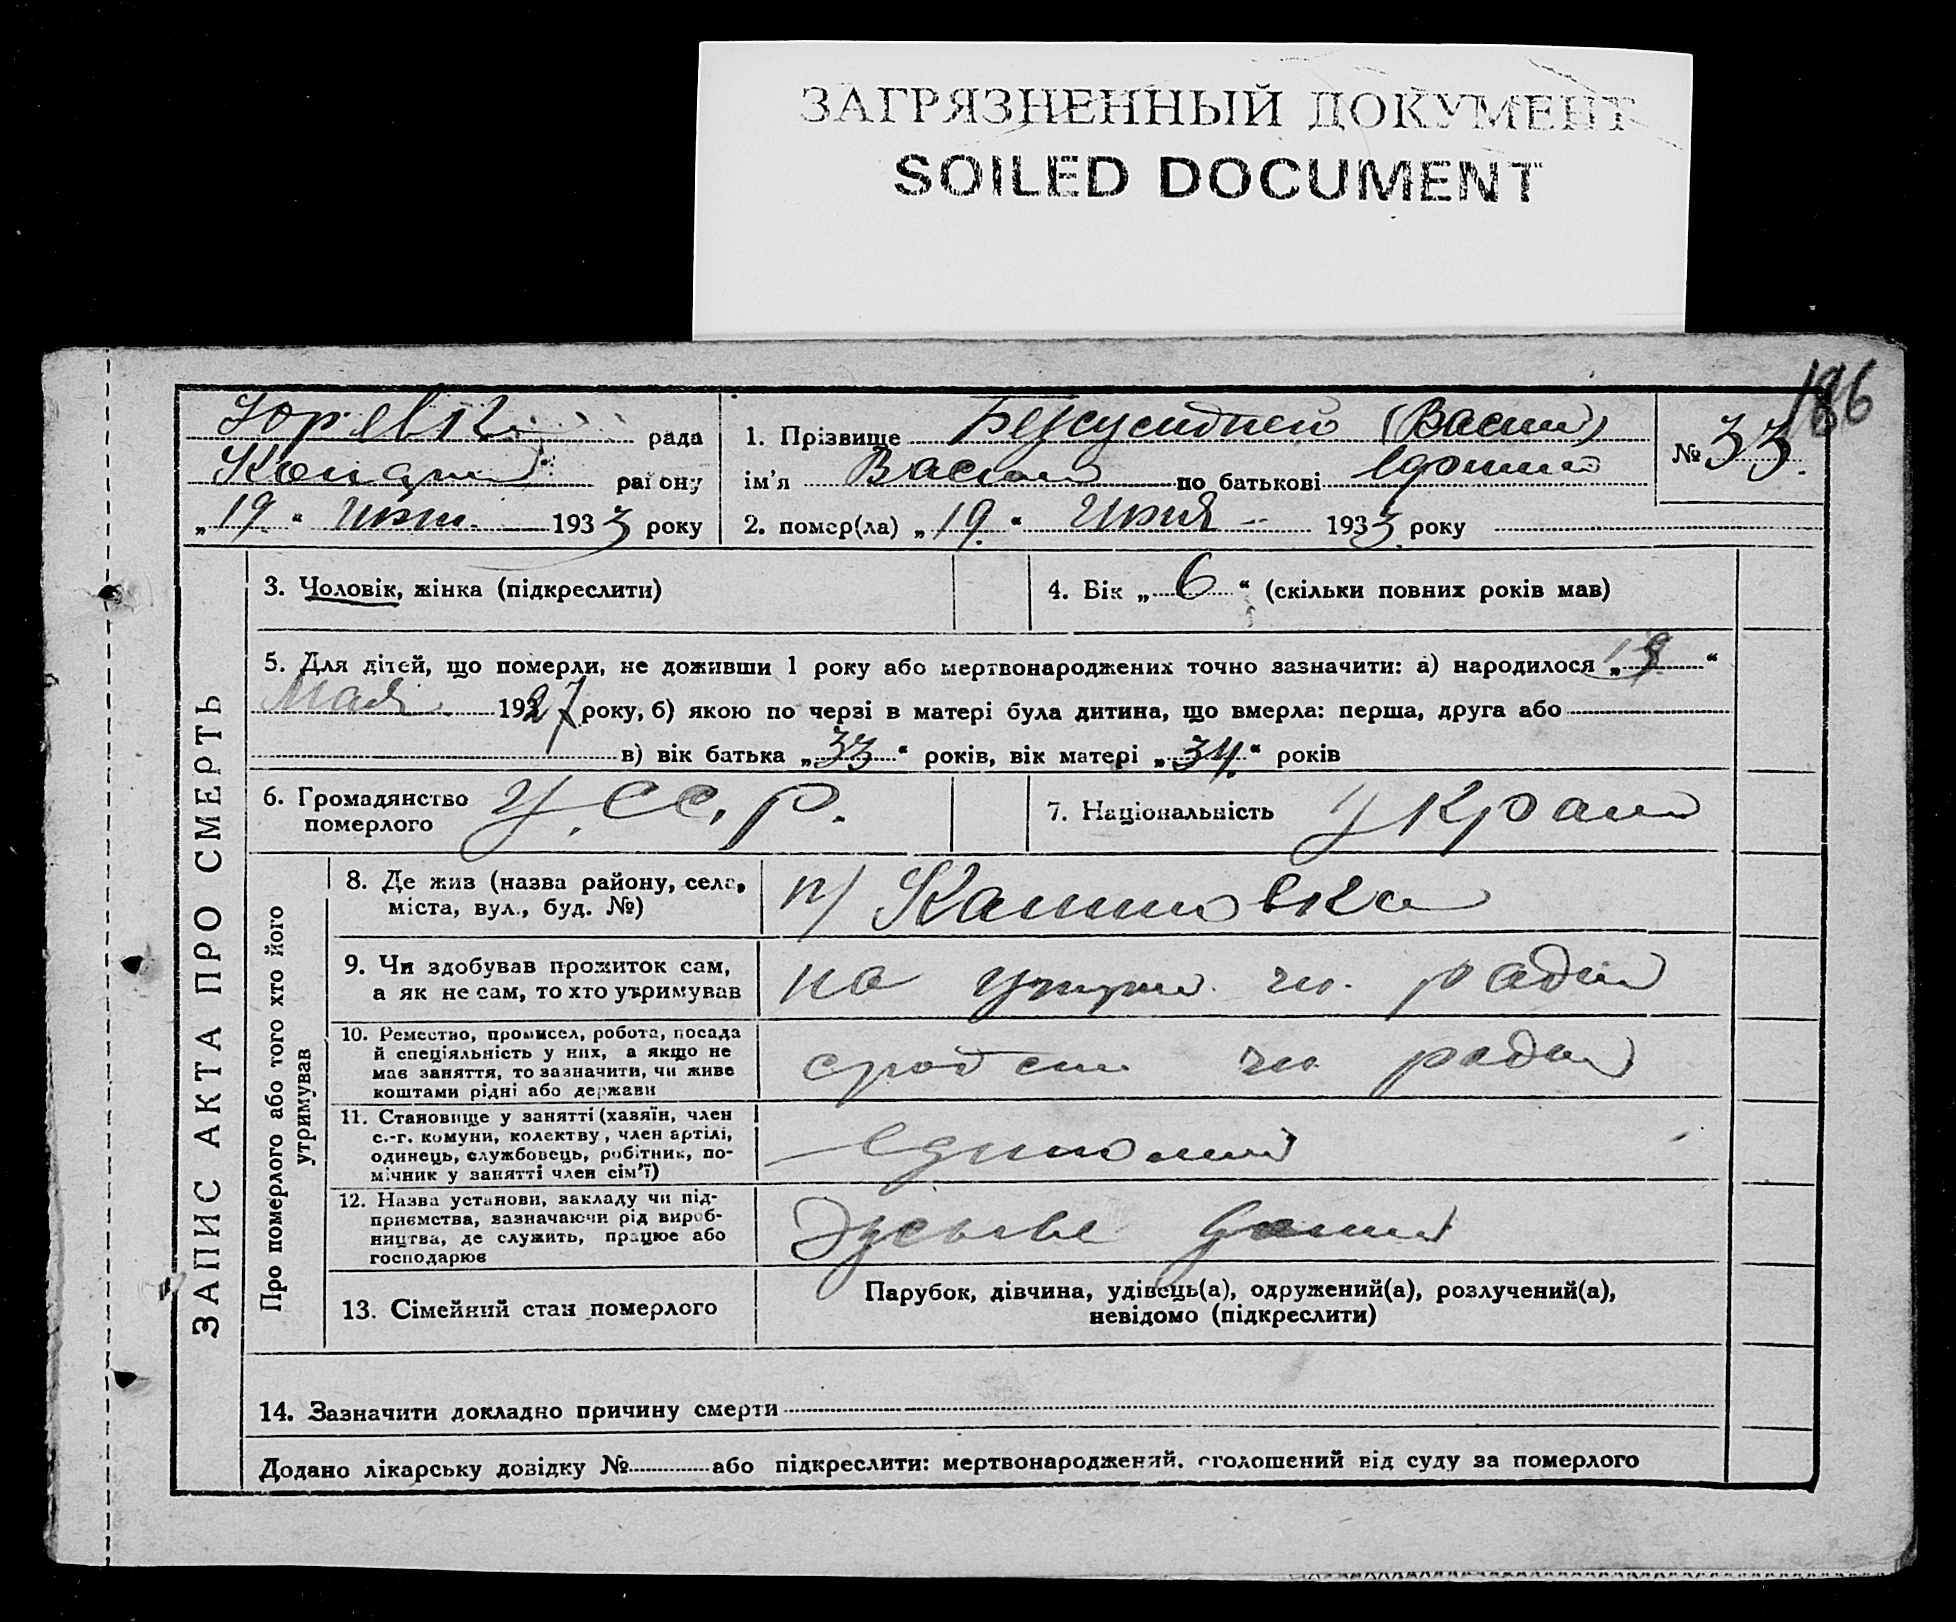 ЗАГРЯЗНЕННЫЙ ДОКУМЕНТ
SOILED DOCUMENT
186
рада
району
„19“ 1933 року
1. Прізвище
ім'я по батькові
2. помер(ла) „19“ Июня 1933 року
№ 33
ЗАПИС АКТА ПРО СМЕРТЬ
3. Чоловік, жінка (підкреслити)
4. Вік „6“ (скільки повних років мав)
5. Для дітей, що померли, не доживши 1 року або мертвонароджених точно зазначити: а) народилося „19“
Мая 1927 року, б) якою по черзі в матері була дитина, що вмерла: перша, друга або
в) вік батька „33“ років, вік матері „34“ років
6. Громадянство
померлого
У.СС.Р.
7. Національність
Про померлого або того хто його
утримував
8. Де жив (назва району, села,
міста, вул., буд. №)
9. Чи здобував прожиток сам,
а як не сам, то хто утримував
на
10. Ремество, промисел, робота, посада
й спеціяльність у них, а якщо не
має заняття, то зазначити, чи живе
коштами рідні або держави
11. Становище у занятті (хазяїн, член
с.-г. комуни, колективу, член артілі,
одинець, службовець, робітник, по-
мічник у занятті член сім'ї)
12. Назва установи, закладу чи під-
приємства, зазначаючи рід вироб-
ництва, де служить, працює або
господарює
13. Сімейний стан померлого
Парубок, дівчина, удівець(а), одружений(а), розлучений(а),
невідомо (підкреслити)
14. Зазначити докладно причину смерти
Додано лікарську довідку № або підкреслити: мертвонароджений, оголошений від суду за померлого